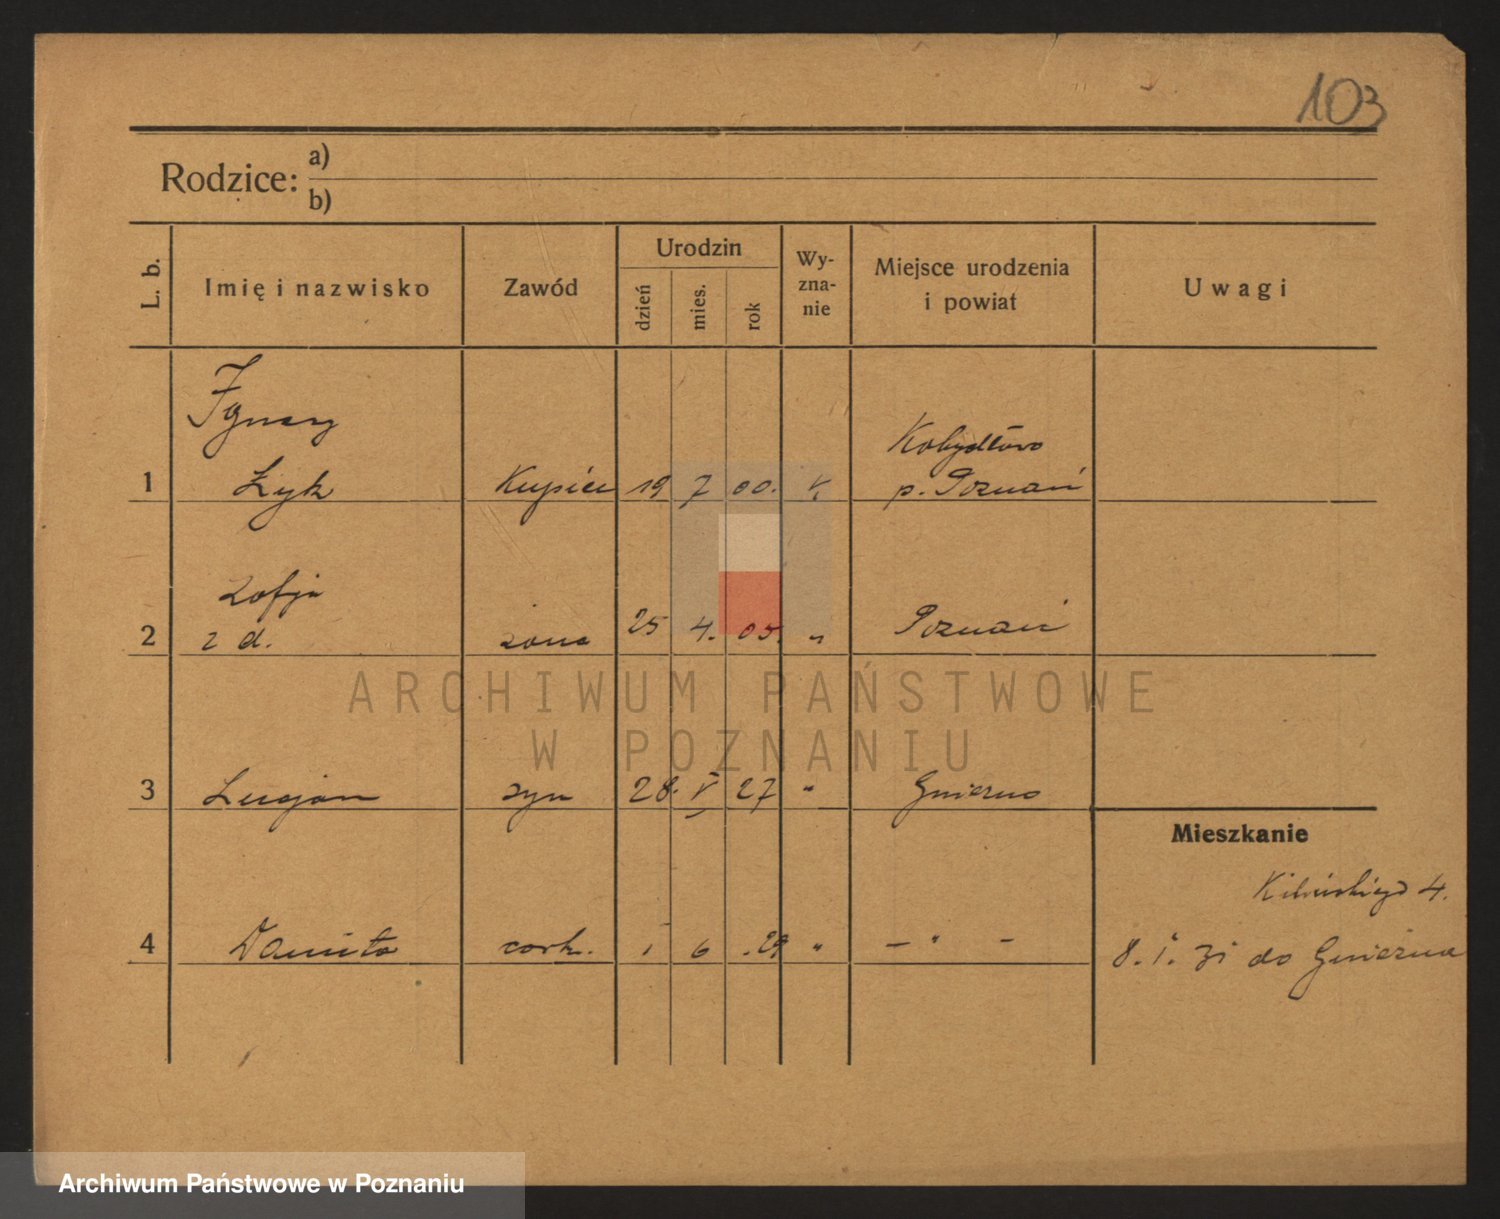 103
Rodzice: a)
b)
L. b. Imię i nazwisko Zawód Urodzin dzień mies. rok Wy-zna-nie Miejsce urodzenia i powiat Uwagi
Ignacy
Kobydłowo
1 Łyk Kupiec 19 7 00. k p. Poznań
Zofja
2 z d. żona 25 4. 05. " Poznań
ARCHIWUM PAŃSTWOWE
W POZNANIU
3 Lucjan syn 28. V 27 " Gniezno
Mieszkanie
Kilińskiego 4.
4 Danuta cork. 1 6 .29 " — " —
8. 1. 31 do Gniezna
Archiwum Państwowe w Poznaniu